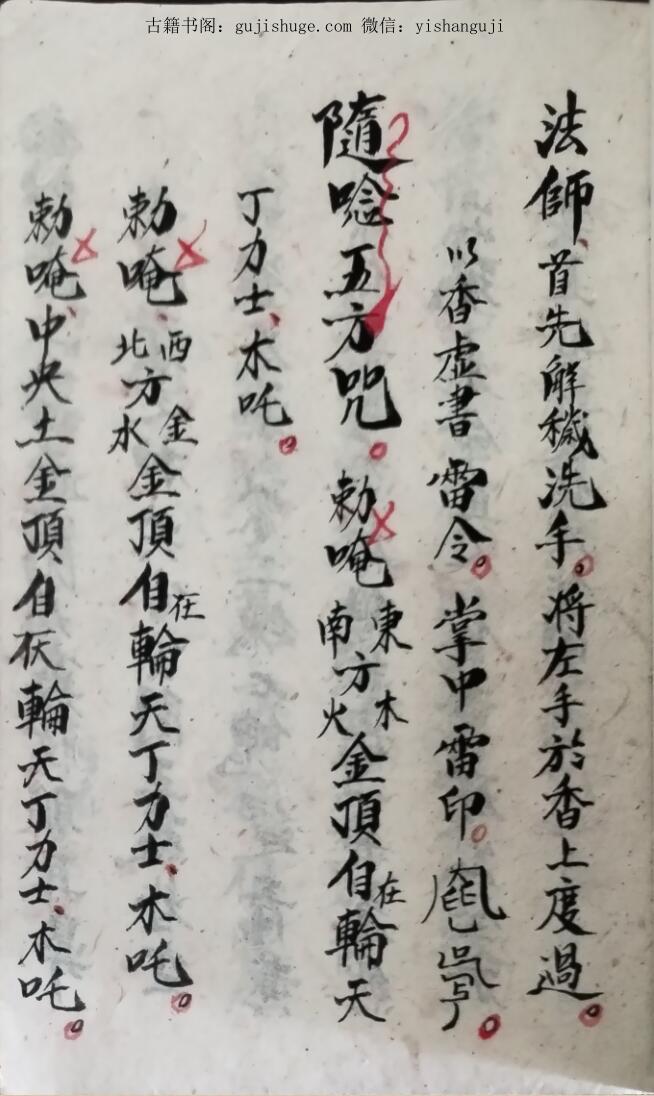 古籍书阁：gujishuge.com 微信：yishanguji
法師、首先解穢洗手。将左手於香上度過。
以香虚書雷令。掌中雷印。
隨唸五方咒。勅唵東木南方火金頂自在輪天
丁力士、木吒。
勅唵、西金北方水金頂自在輪天丁力士、木吒。
勅唵、中央土金頂自在輪天丁力士、木吒。